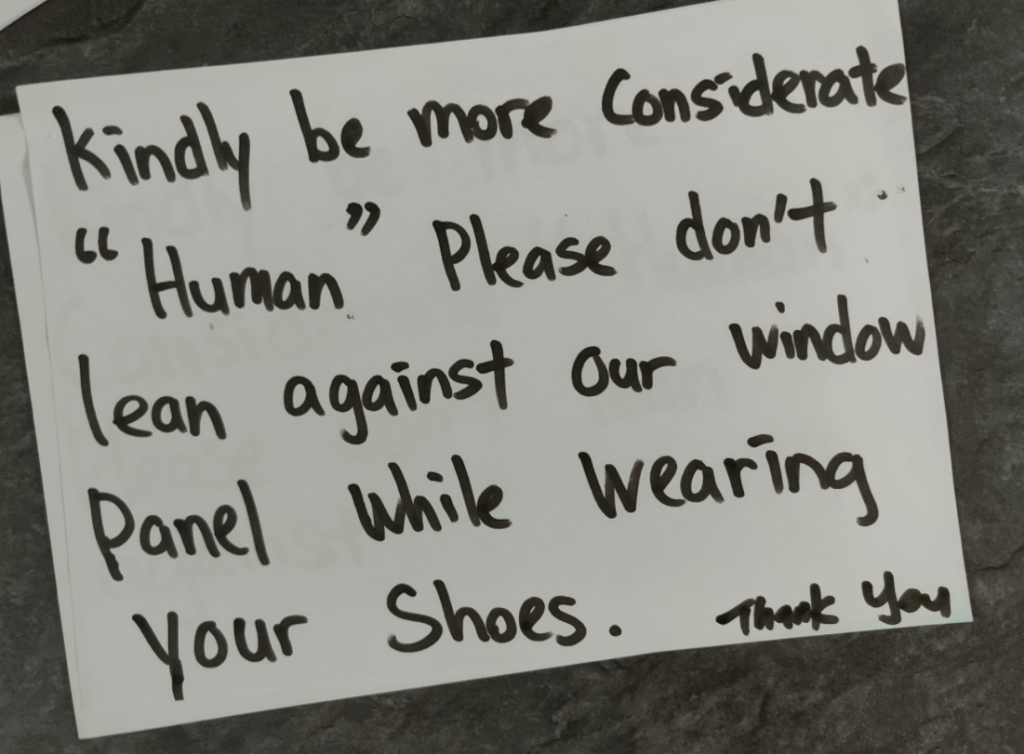 Kindly be more Considerate
“Human” Please don't
lean against our window
Panel while wearing
your Shoes. Thank You